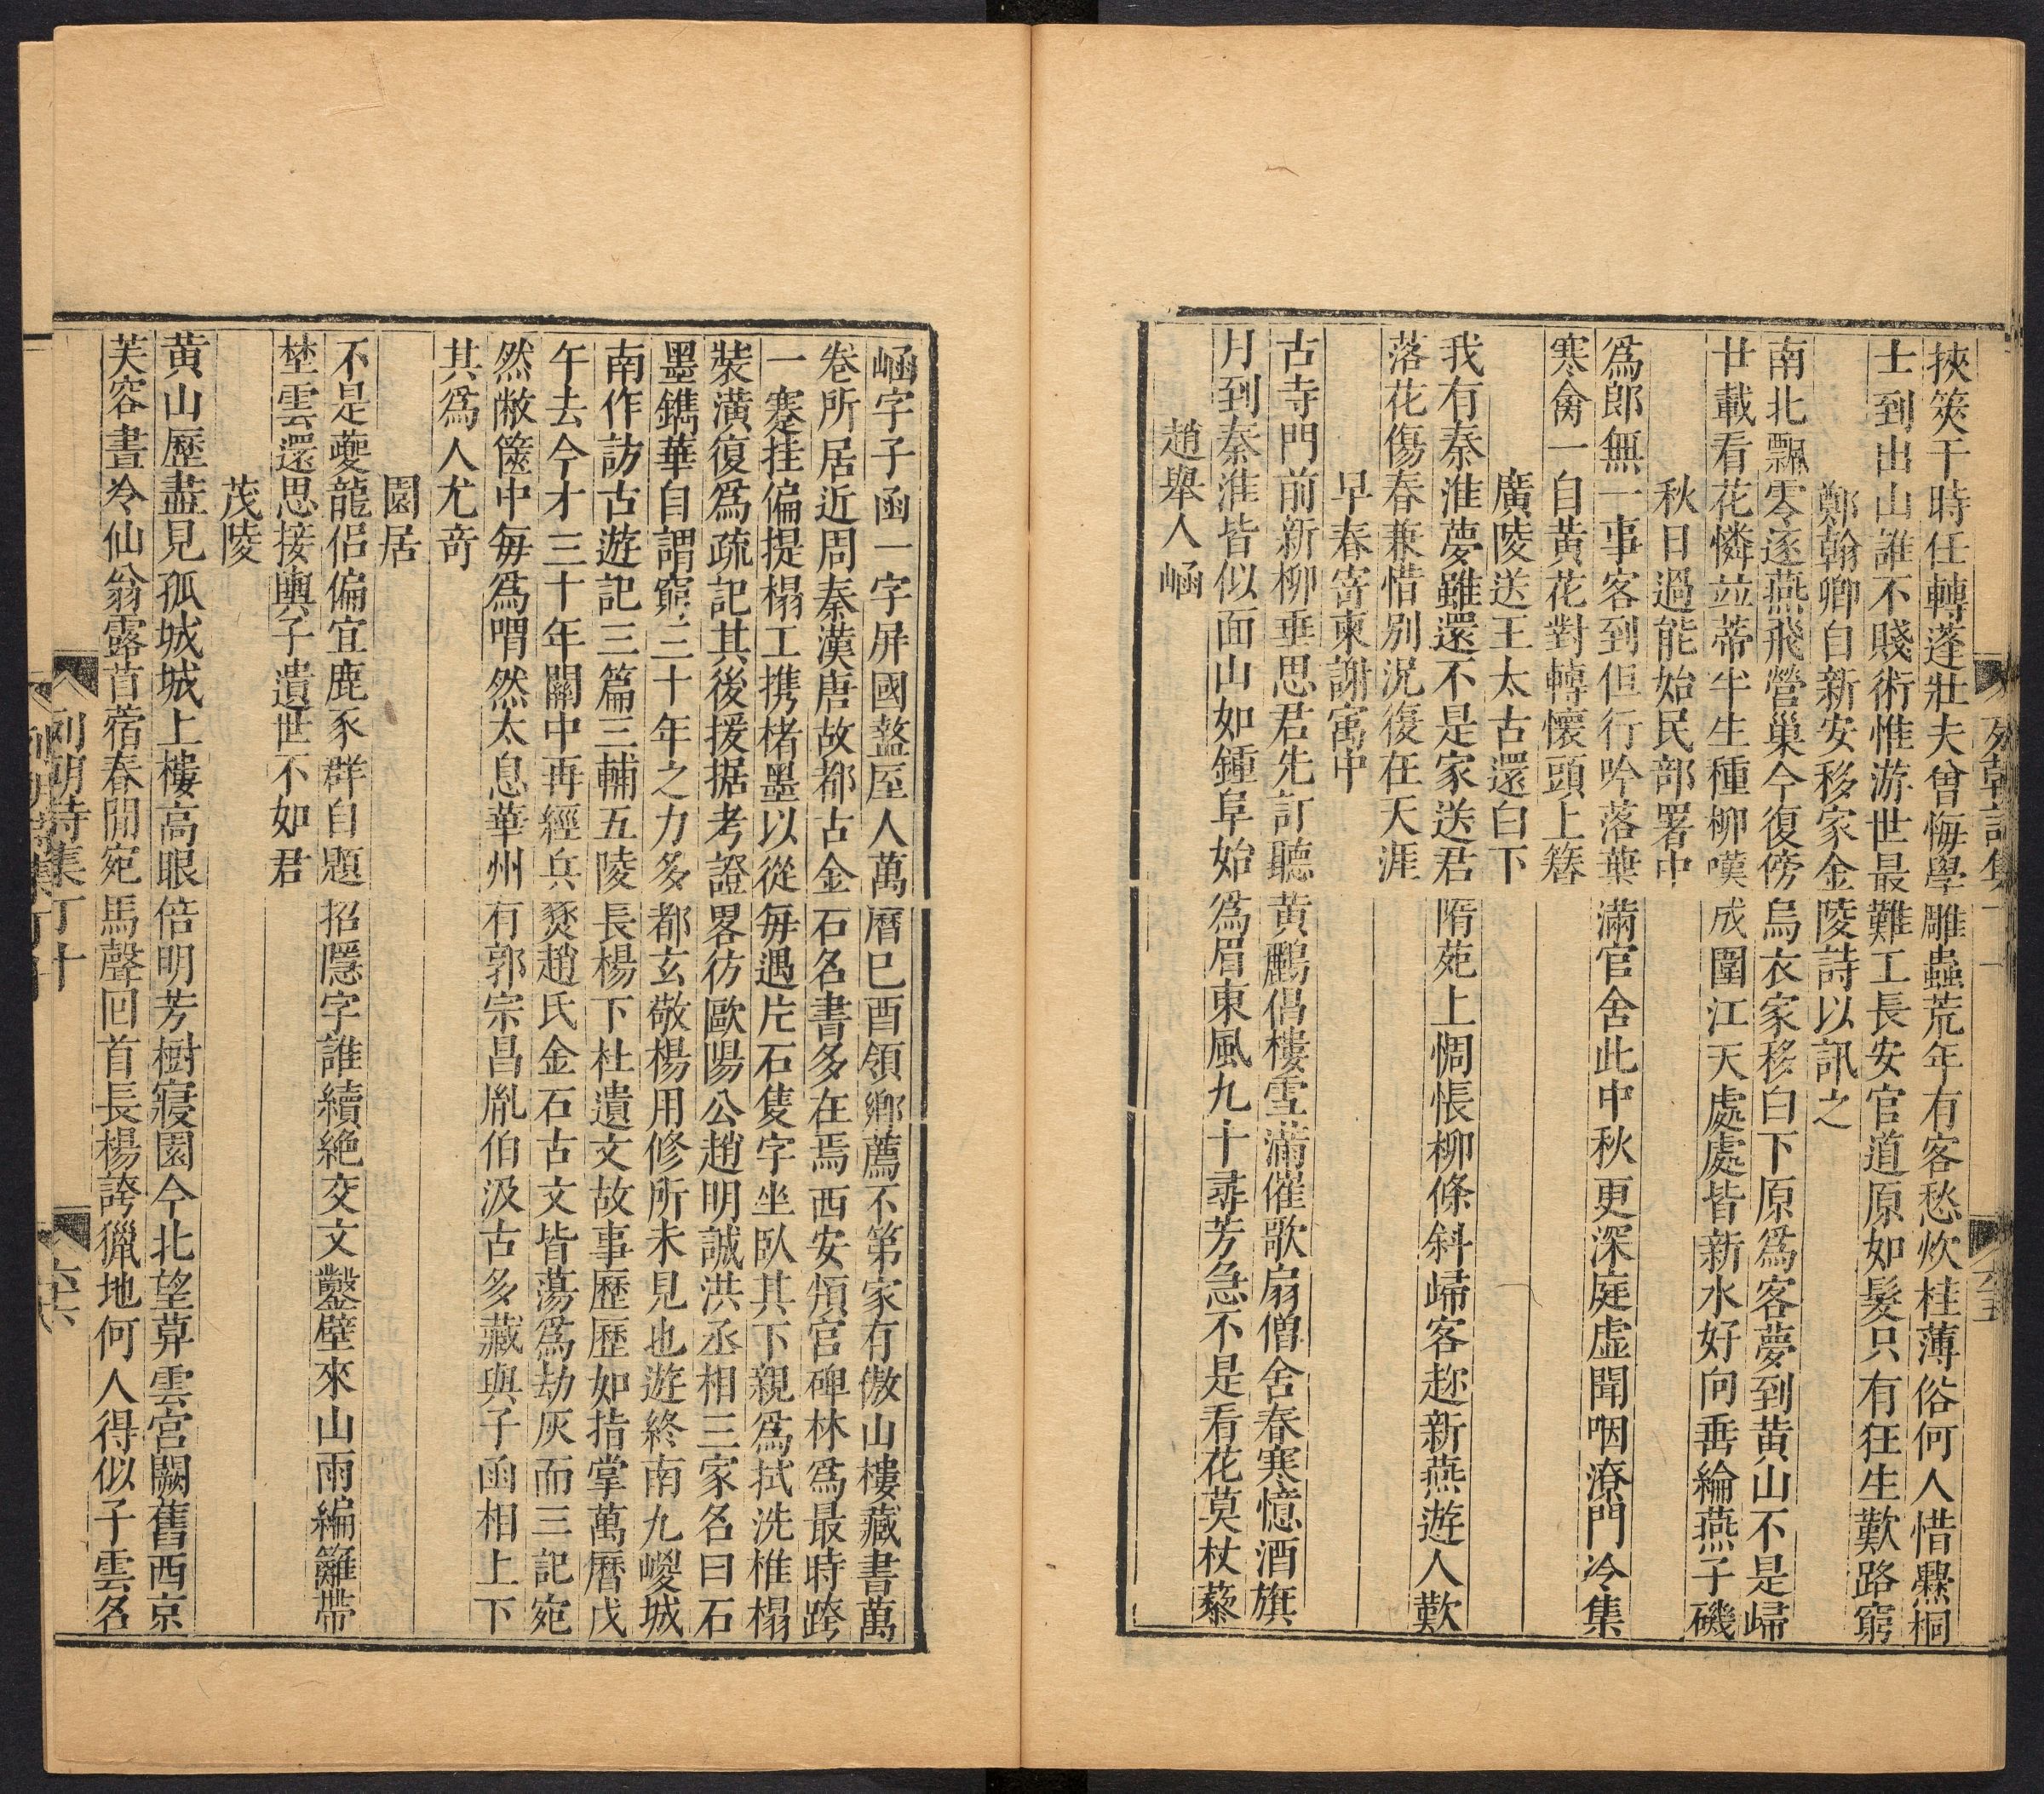 挾筴干時任轉蓬壯夫曾悔學雕蟲荒年有客愁炊桂薄俗何人惜爨桐
士到出山誰不賤術惟游世最難工長安官道原如髮只有狂生歎路窮
鄭翰卿自新安移家金陵詩以訊之
南北飄零逐燕飛營巢今復傍烏衣家移白下原爲客夢到黃山不是歸
廿載看花憐竝蒂半生種柳嘆成圍江天處處皆新水好向垂綸燕子磯
秋日過能始民部署中
爲郎無一事客到但行吟落葉滿官舍此中秋更深庭虛聞咽潦門冷集
寒禽一自黃花對轉懷頭上簪
廣陵送王太古還白下
我有秦淮夢雖還不是家送君隋苑上惆悵柳條斜歸客趂新燕遊人歎
落花傷春兼惜别況復在天涯
早春寄東謝寓中
古寺門前新柳垂思君先訂聽黃鸝倡樓雪滿催歌扇僧舍春寒憶酒旗
月到秦淮皆似面山如鍾阜始爲眉東風九十尋芳急不是看花莫杖藜
趙舉人崡
崡字子函一字屏國盩厔人萬曆巳酉領鄕薦不第家有傲山樓藏書萬
卷所居近周秦漢唐故都古金石名書多在焉西安頖官碑林爲最時跨
一蹇挂偏提榻工携楮墨以從每遇片石隻字坐臥其下親爲拭洗椎榻
裝潢復爲疏記其後援据考證畧彷歐陽公趙明誠洪丞相三家名曰石
墨鐫華自謂窮三十年之力多都玄敬楊用修所未見也遊終南九嵕城
南作訪古遊記三篇三輔五陵長楊下杜遺文故事歷歷如指掌萬曆戊
午去今才三十年關中再經兵燹趙氏金石古文皆蕩爲劫灰而三記宛
然敝篋中每爲喟然太息華州有郭宗昌胤伯汲古多藏與子函相上下
其爲人尤奇
園居
不是夔龍侣偏宜鹿豕群自題招隱字誰續絶交文鑿壁來山雨編籬帶
埜雲還思接輿子遺世不如君
茂陵
黃山歷盡見孤城城上樓高眼倍明芳樹寢園今北望莽雲宮闕舊西京
芙容晝冷仙翁露苜蓿春閒宛馬聲回首長楊誇獵地何人得似子雲名
列朝詩集丁十
六十六